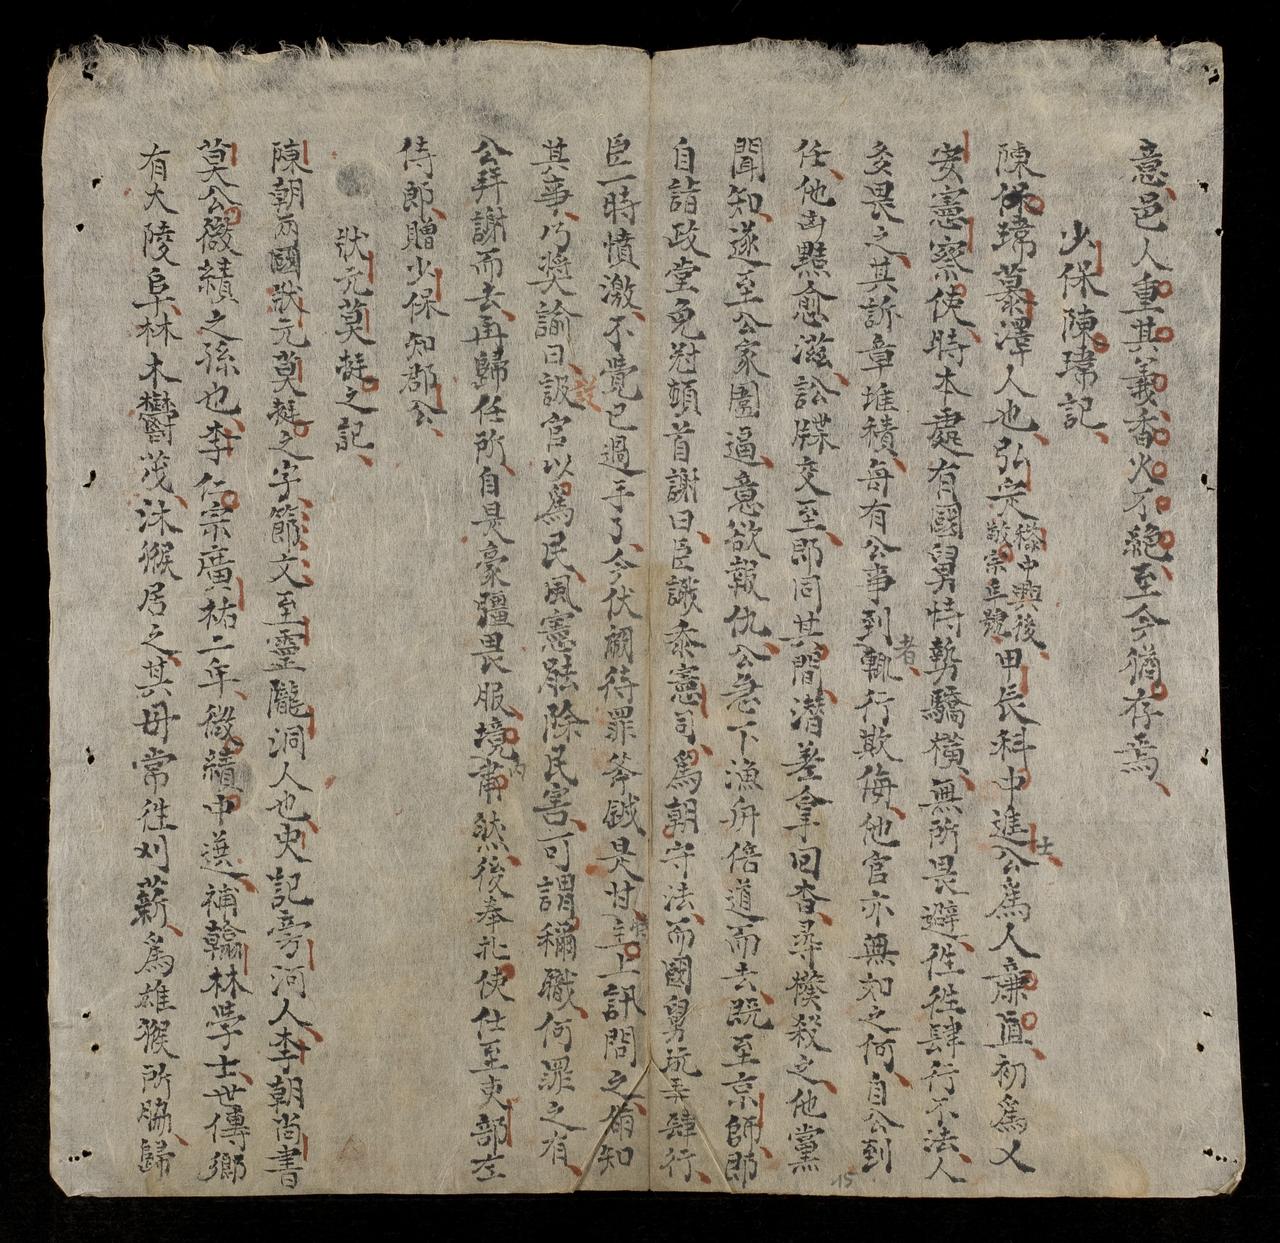 意邑人重其義香火不絕至今猶存焉
少保陳瑋記
陳保瑋慕澤人也弘定黎中興後敬宗年號甲辰科中進士公爲人廉直初爲乂
安憲察使時本處有國舅恃勢驕橫無所畏避徃徃肆行不法人
多畏之其訴章堆積每有公事到者輒行欺侮他官亦無如之何自公到
任他凶黠愈滋訟牒交至即同其間潛差拿回查尋撲殺之他黨
聞知遂至公家圍逼意欲報仇公急下漁舟倍道而去既至京師即
自詣政堂免冠頓首謝曰臣謬忝憲司爲朝守法而國舅玩弄肆行
臣一時憤激不覺已過手了今伏闕待罪斧鉞是甘主上訊問之備知
其事乃奬諭曰設官以爲民風憲能除民害可謂稱職何罪之有
公拜謝而去再歸任所自是豪彊畏服境內肅然後奉北使仕至吏部左
侍郎贈少保知郡公
狀元莫挺之記
陳朝兩國狀元莫挺之字節文至靈隴洞人也史記旁河人李朝尚書
莫公徽績之孫也李仁宗廣祐二年徽績中選補翰林學士世傳鄉
有大陵阜林木欝茂沐猴居之其母常徃刈薪爲雄猴所脇歸